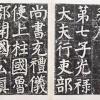 第七子光祿
大夫行吏部
尚書充禮儀
使上柱國魯
郡開國公真